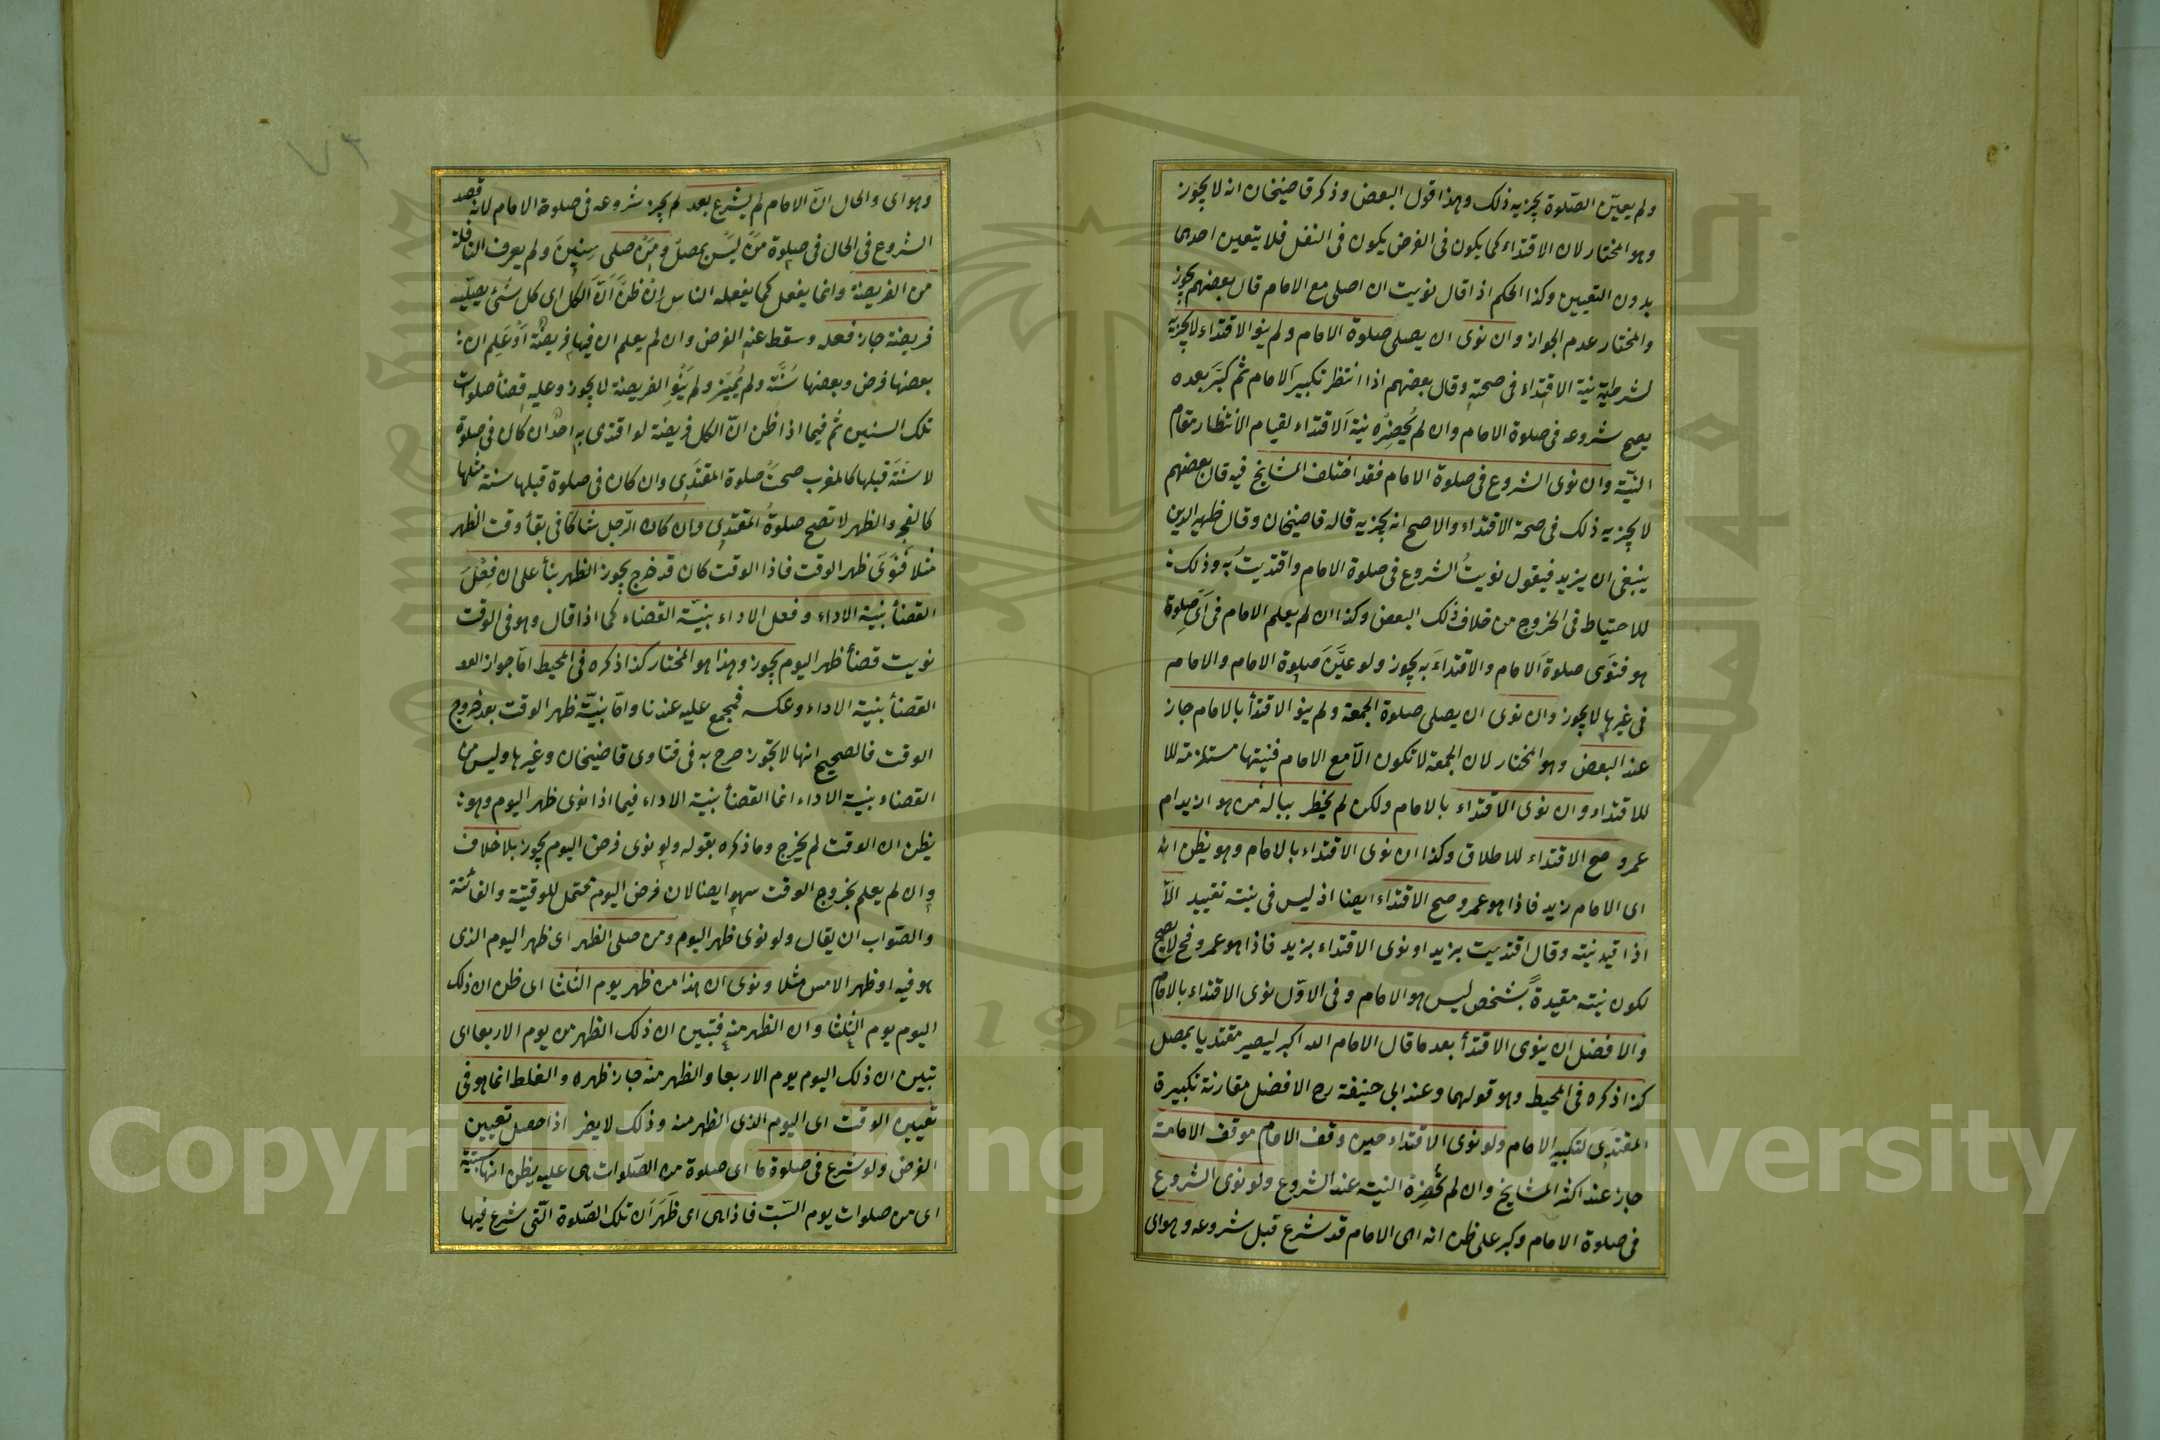 ولم يعين الصلوة يجزيه ذلك وهذا قول البعض وذكر قاضيخان انه لا يجوز
وهو المختار لان الاقتداء كما يكون فى الفرض يكون فى النفل فلا يتعين احدى
بدون التعيين وكذا الحكم اذا قال نويت ان اصلى مع الامام قال بعضهم يجوز
والمختار عدم الجواز وان نوى ان يصلى صلوة الامام ولم ينو الاقتداء لا يجزيه
لشرطية نية الاقتداء فى صحته وقال بعضهم اذا انتظر تكبير الامام ثم كبر بعده
يصح شروعه فى صلوة الامام وان لم يحضره نية الاقتداء لقيام الانتظار مقام
النية وان نوى الشروع فى صلوة الامام فقد اختلف المشايخ فيه قال بعضهم
لا يجزيه ذلك فى صحة الاقتداء والاصح انه يجزيه قاله قاضيخان وقال ظهير الدين
ينبغى ان يزيد فيقول نويت الشروع فى صلوة الامام واقتديت به وذلك
للاحتياط فى الخروج من خلاف ذلك البعض وكذا ان لم يعلم الامام فى اى صلوة
هو فنوى صلوة الامام والاقتداء به يجوز ولو عين صلوة الامام والامام
فى غيرها لا يجوز وان نوى ان يصلى صلوة الجمعة ولم ينو الاقتدأ بالامام جاز
عند البعض وهو المختار لان الجمعة لا تكون الا مع الامام فنيتها مستلزمة للا
للاقتداء وان نوى الاقتداء بالامام ولكن لم يخطر بباله من هو ازيد ام
عمرو صح الاقتداء للاطلاق وكذا ان نوى الاقتداء بالامام وهو يظن انه
اى الامام زيد فاذا هو عمرو صح الاقتداء ايضا اذ ليس فى نيته تقييد الا
اذا قيد نيته وقال اقتديت بزيد او نوى الاقتداء بزيد فاذا هو عمرو فح لا يصح
لكون نيته مقيدة بشخص ليس هو الامام وفى الاول نوى الاقتداء بالامام
والافضل ان ينوى الاقتدأ بعد ما قال الامام الله اكبر ليصير مقتديا بمصل
كذا ذكره فى المحيط وهو قولهما وعند ابى حنيفة ره الافضل مقارنة تكبيرة
المقتدى لتكبير الامام ولو نوى الاقتداء حين وقف الامام موقف الامامة
جاز عند اكثر المشايخ وان لم تحضره النية عند الشروع ولو نوى الشروع
فى صلوة الامام وكبر على ظن انه اى الامام قد شرع قبل شروعه وهو اى
وهو اى والحال ان الامام لم يشرع بعد لم يجز شروعه فى صلوة الامام لانه قصد
الشروع فى الحال فى صلوة من ليس بمصل ومن صلى سنين ولم يعرف النافلة
من الفريضة وانما يفعل كما يفعله الناس ان ظن ان الكل اى كل شئ يصليه
فريضة جاز فعله وسقط عنه الفرض وان لم يعلم ان فيها فريضة او علم ان
بعضها فرض وبعضها سنة ولم يميز ولم ينو الفريضة لا يجوز وعليه قضأ صلوات
تلك السنين ثم فيما اذا ظن ان الكل فريضة لو اقتدى به احد ان كان فى صلوة
لا سنة قبلها كالمغرب صحت صلوة المقتدى وان كان فى صلوة قبلها سنة مثلها
كالفجر والظهر لا تصح صلوة المقتدى وان كان الرجل شاكا فى بقأ وقت الظهر
مثلا فنوى ظهر الوقت فاذا الوقت كان قد خرج يجوز الظهر بنأ على ان فعل
القضأ بنية الاداء وفعل الاداء بنية القضاء كما اذا قال وهو فى الوقت
نويت قضأ ظهر اليوم يجوز وهذا هو المختار كذا ذكره فى المحيط اما جواز
القضأ بنية الاداء وعكسه فمجمع عليه عندنا واما بنية ظهر الوقت بعد خروج
الوقت فالصحيح انها لا تجوز صرح به فى فتاوى قاضيخان وغيرها وليس من
القضاء بنية الاداء انما القضأ بنية الاداء فيما اذا نوى ظهر اليوم وهو
يظن ان الوقت لم يخرج وما ذكره بقوله ولو نوى فرض اليوم يجوز بلا خلاف
وان لم يعلم بخروج الوقت سهو ايضا لان فرض اليوم محتمل للوقتية والفائتة
والصواب ان يقال ولو نوى ظهر اليوم ومن صلى الظهر اى ظهر اليوم الذى
هو فيه او ظهر الامس مثلا ونوى ان هذا من ظهر يوم الثلثا اى ظن ان ذلك
اليوم يوم الثلثا وان الظهر منه فتبين ان ذلك الظهر من يوم الاربعا اى
تبين ان ذلك اليوم يوم الاربعا والظهر منه جاز ظهره والغلط انما هو فى
تعيين الوقت اى اليوم الذى الظهر منه وذلك لا يضر اذا حصل تعيين
الفرض ولو شرع فى صلوة ما اى صلوة من الصلوات هى عليه يظن انها سبتية
اى من صلوات يوم السبت فاذا هى اى ظهر ان تلك الصلوة التى شرع فيها
Copyright © King Saud University